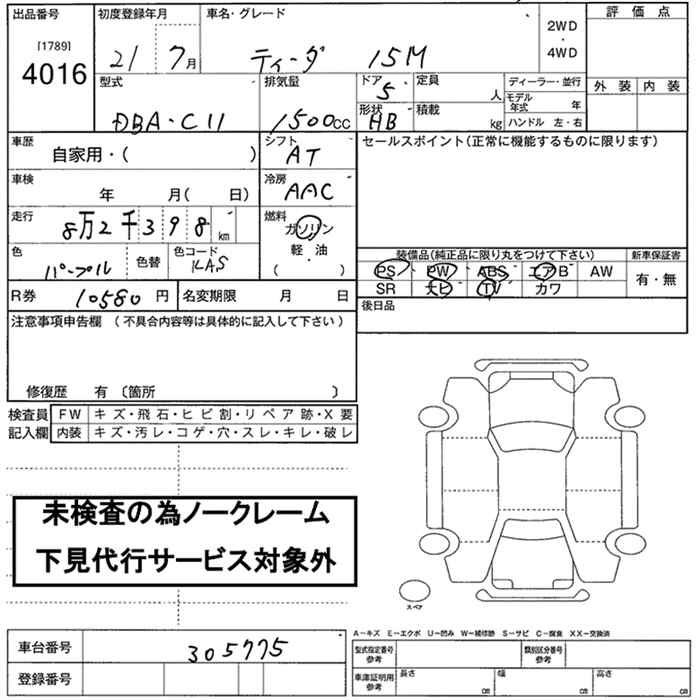 出品番号 初度登録年月 車名・グレード 評価点
[1789] 21 7月 ティーダ 15M 2WD・4WD
4016
型式 排気量 ドア 5 定員 人 ディーラー・並行 外装 内装
DBA-C11 1500cc 形状 HB 積載 kg モデル年式 年
ハンドル 左・右
車歴 自家用・( ) シフト AT セールスポイント(正常に機能するものに限ります)
車検 年 月( 日) 冷房 AAC
走行 8万2千398km 燃料 ガソリン
軽・油
( )
色 パープル 色替 色コード 装備品(純正品に限り丸をつけて下さい) 新車保証書
PS PW ABS エアB AW 有・無
SR ナビ TV カワ
R券 10580円 名変期限 月 日 後日品
注意事項申告欄(不具合内容等は具体的に記入して下さい)
修復歴 有〔箇所 〕
検査員 FW キズ・飛石・ヒビ割・リペア跡・X要
記入欄 内装 キズ・汚レ・コゲ・穴・スレ・キレ・破レ
未検査の為ノークレーム
下見代行サービス対象外
スペア
A-キズ E-エクボ U-凹み W-補修跡 S-サビ C-腐食 XX-交換済
車台番号 305775 型式指定番号 参考 類別区分番号 参考
登録番号 車庫証明用 参考 長さ cm 幅 cm 高さ cm